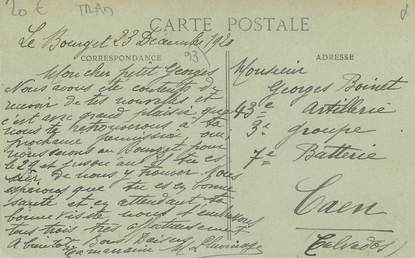 20 € TRAM
CARTE POSTALE
Le Bourget 23 Décembre 1920
(93)
CORRESPONDANCE
ADRESSE
Mon cher petit Georges
Nous avons été contents de
recevoir de tes nouvelles et
c'est avec grand plaisir que
nous te retrouverons à ta
prochaine permission oui
nous serons au Bourget pour
le 29 et jusqu'au 31 tu es
sûr de nous y trouver nous
espérons que tu es en bonne
santé et en attendant ta
bonne visite nous t'embrassons
tous trois très affectueusement
A bientôt Bons Baisers
Ta marraine
Monsieur
Georges Boinet
43e Artillerie
3e groupe
7e Batterie
Caen
Calvados